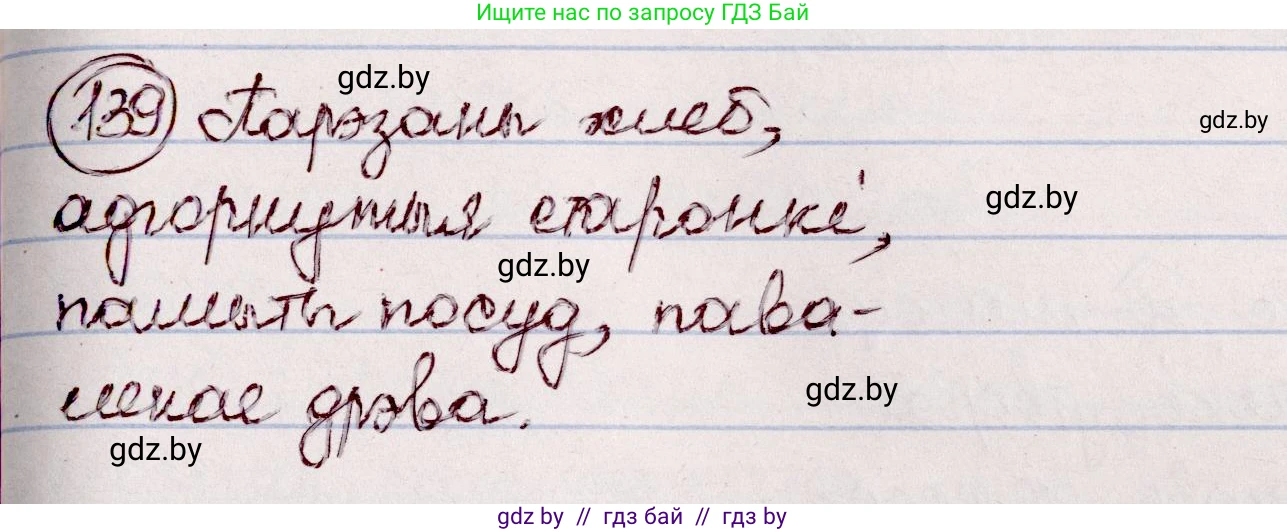 Ищите нас по запросу ГДЗ Бай
139 Парэзаны хлеб,
gdz.by
gdz.by
адгорнутыя старонкі,
gdz.by
gdz.by
памыты посуд, пава-
леная дрэва.
gdz.by
gdz.by
gdz by // гдз бай // гдз by